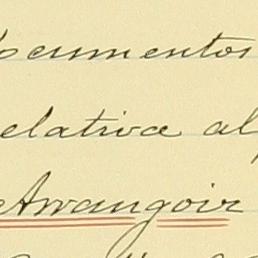 documentos
relativa al
Arwangoir